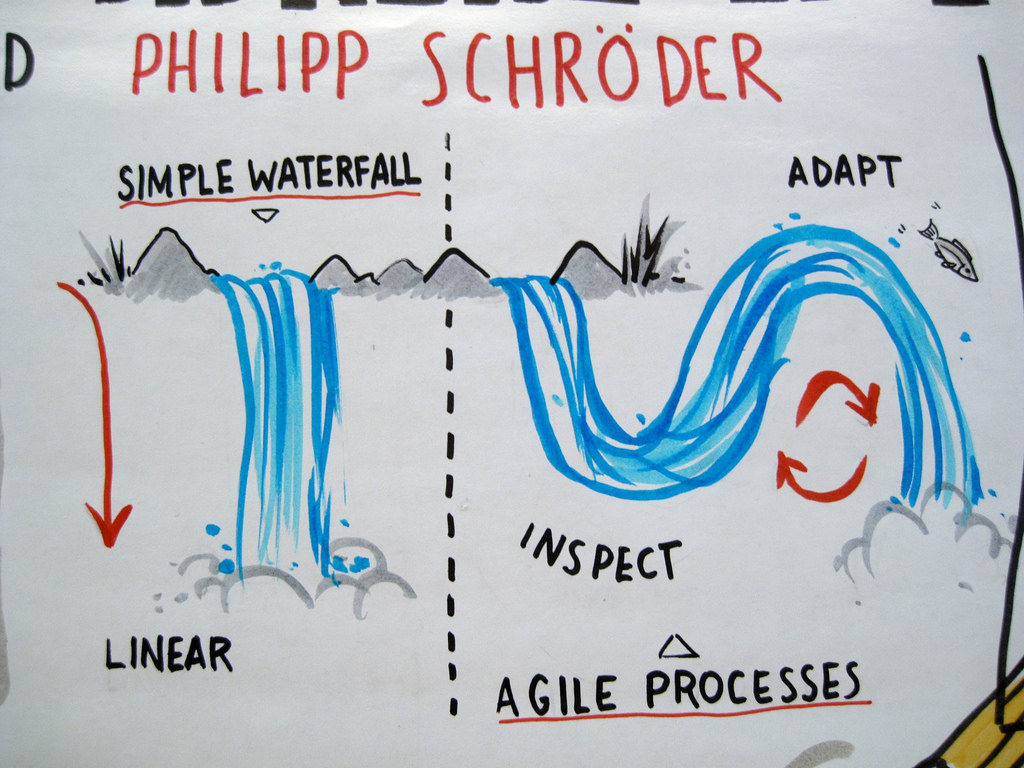 D PHILIPP SCHRÖDER
SIMPLE WATERFALL
LINEAR
ADAPT
INSPECT
AGILE PROCESSES